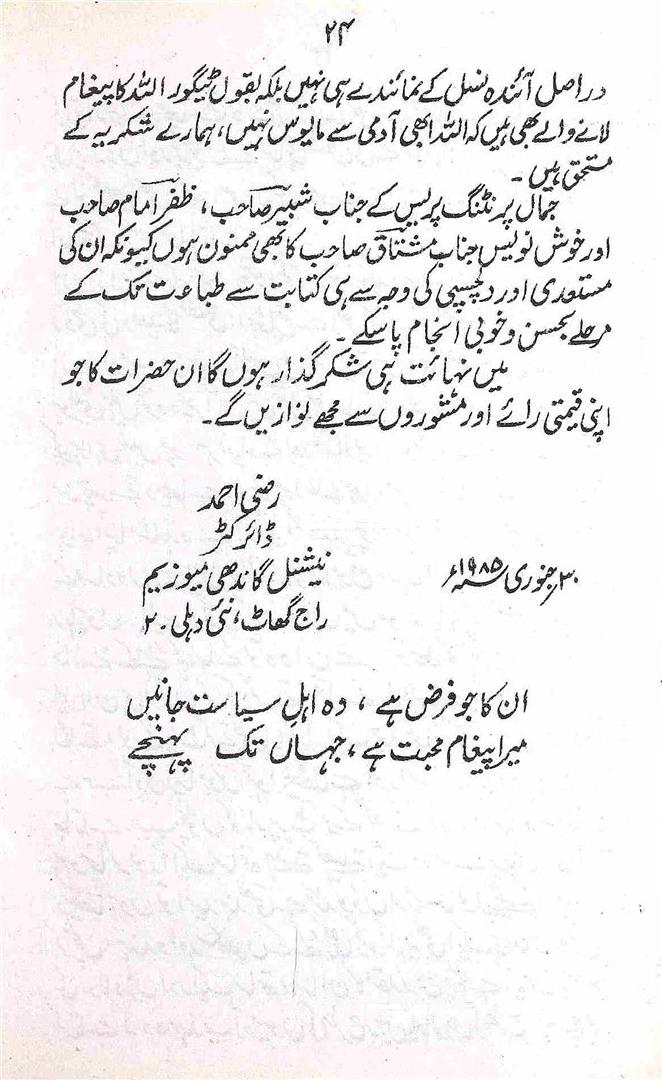 ۲۴
دراصل آئندہ نسل کے نمائندے ہی نہیں بلکہ بقول ٹیگور اللہ کا پیغام
لانے والے بھی ہیں کہ اللہ ابھی آدمی سے مایوس نہیں، ہمارے شکریہ کے
مستحق ہیں۔
جمال پرنٹنگ پریس کے جناب شبیر صاحب، ظفر امام صاحب
اور خوش نویس جناب مشتاق صاحب کا بھی ممنون ہوں کیونکہ ان کی
مستعدی اور دلچسپی کی وجہ سے ہی کتابت سے طباعت تک کے
مرحلے بحسن وخوبی انجام پاسکے۔
میں نہائت ہی شکر گذار ہوں گا ان حضرات کا جو
اپنی قیمتی رائے اور مشوروں سے مجھے نوازیں گے۔
رضی احمد
ڈائرکٹر
نیشنل گاندھی میوزیم
۳۰ جنوری ۱۹۸۵ء
راج گھاٹ، نئی دہلی۔۲
ان کا جو فرض ہے، وہ اہل سیاست جانیں
میرا پیغام محبت ہے، جہاں تک پہنچے